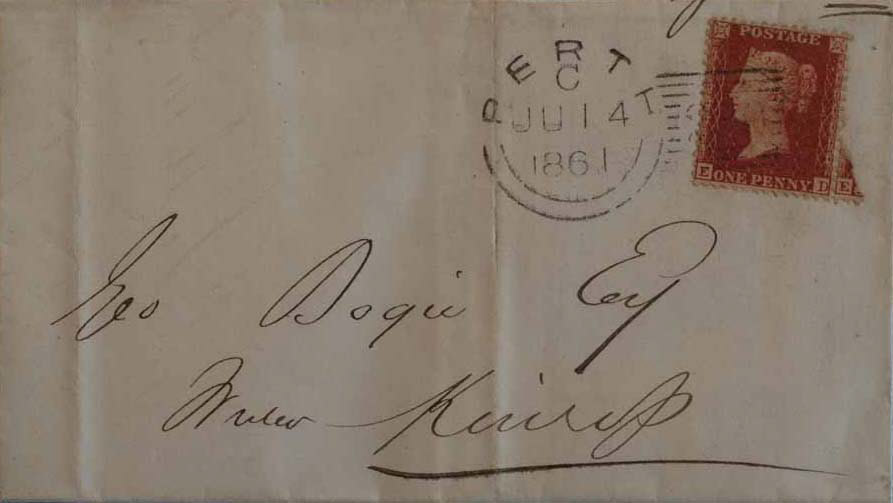 POSTAGE
E ONE PENNY D E
PERTH
C
JU 14
1861
Geo Bogie Esq
Writer Kinross